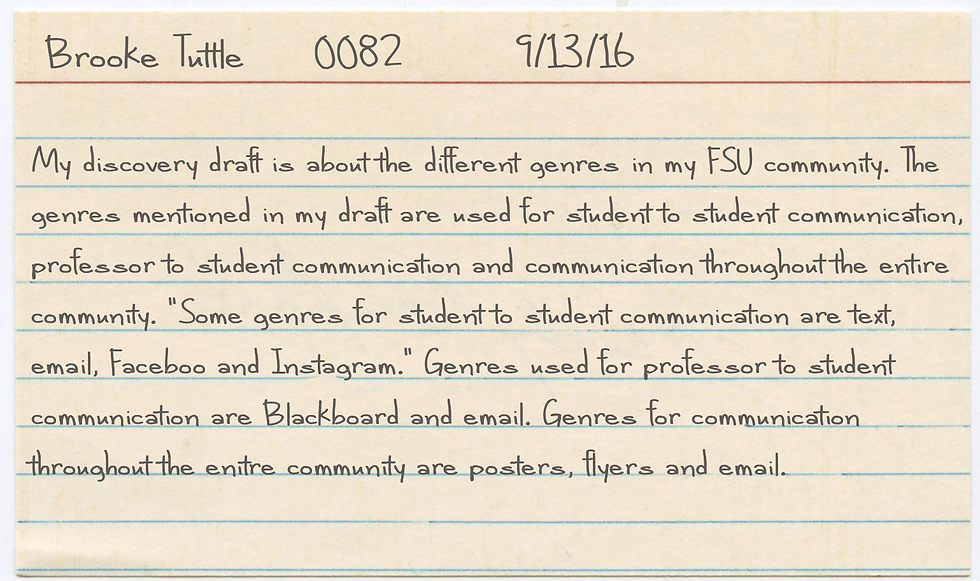 Brooke Tuttle 0082 9/13/16
My discovery draft is about the different genres in my FSU community. The
genres mentioned in my draft are used for student to student communication,
professor to student communication and communication throughout the entire
community. "Some genres for student to student communication are text,
email, Faceboo and Instagram." Genres used for professor to student
communication are Blackboard and email. Genres for communication
throughout the entire community are posters, flyers and email.